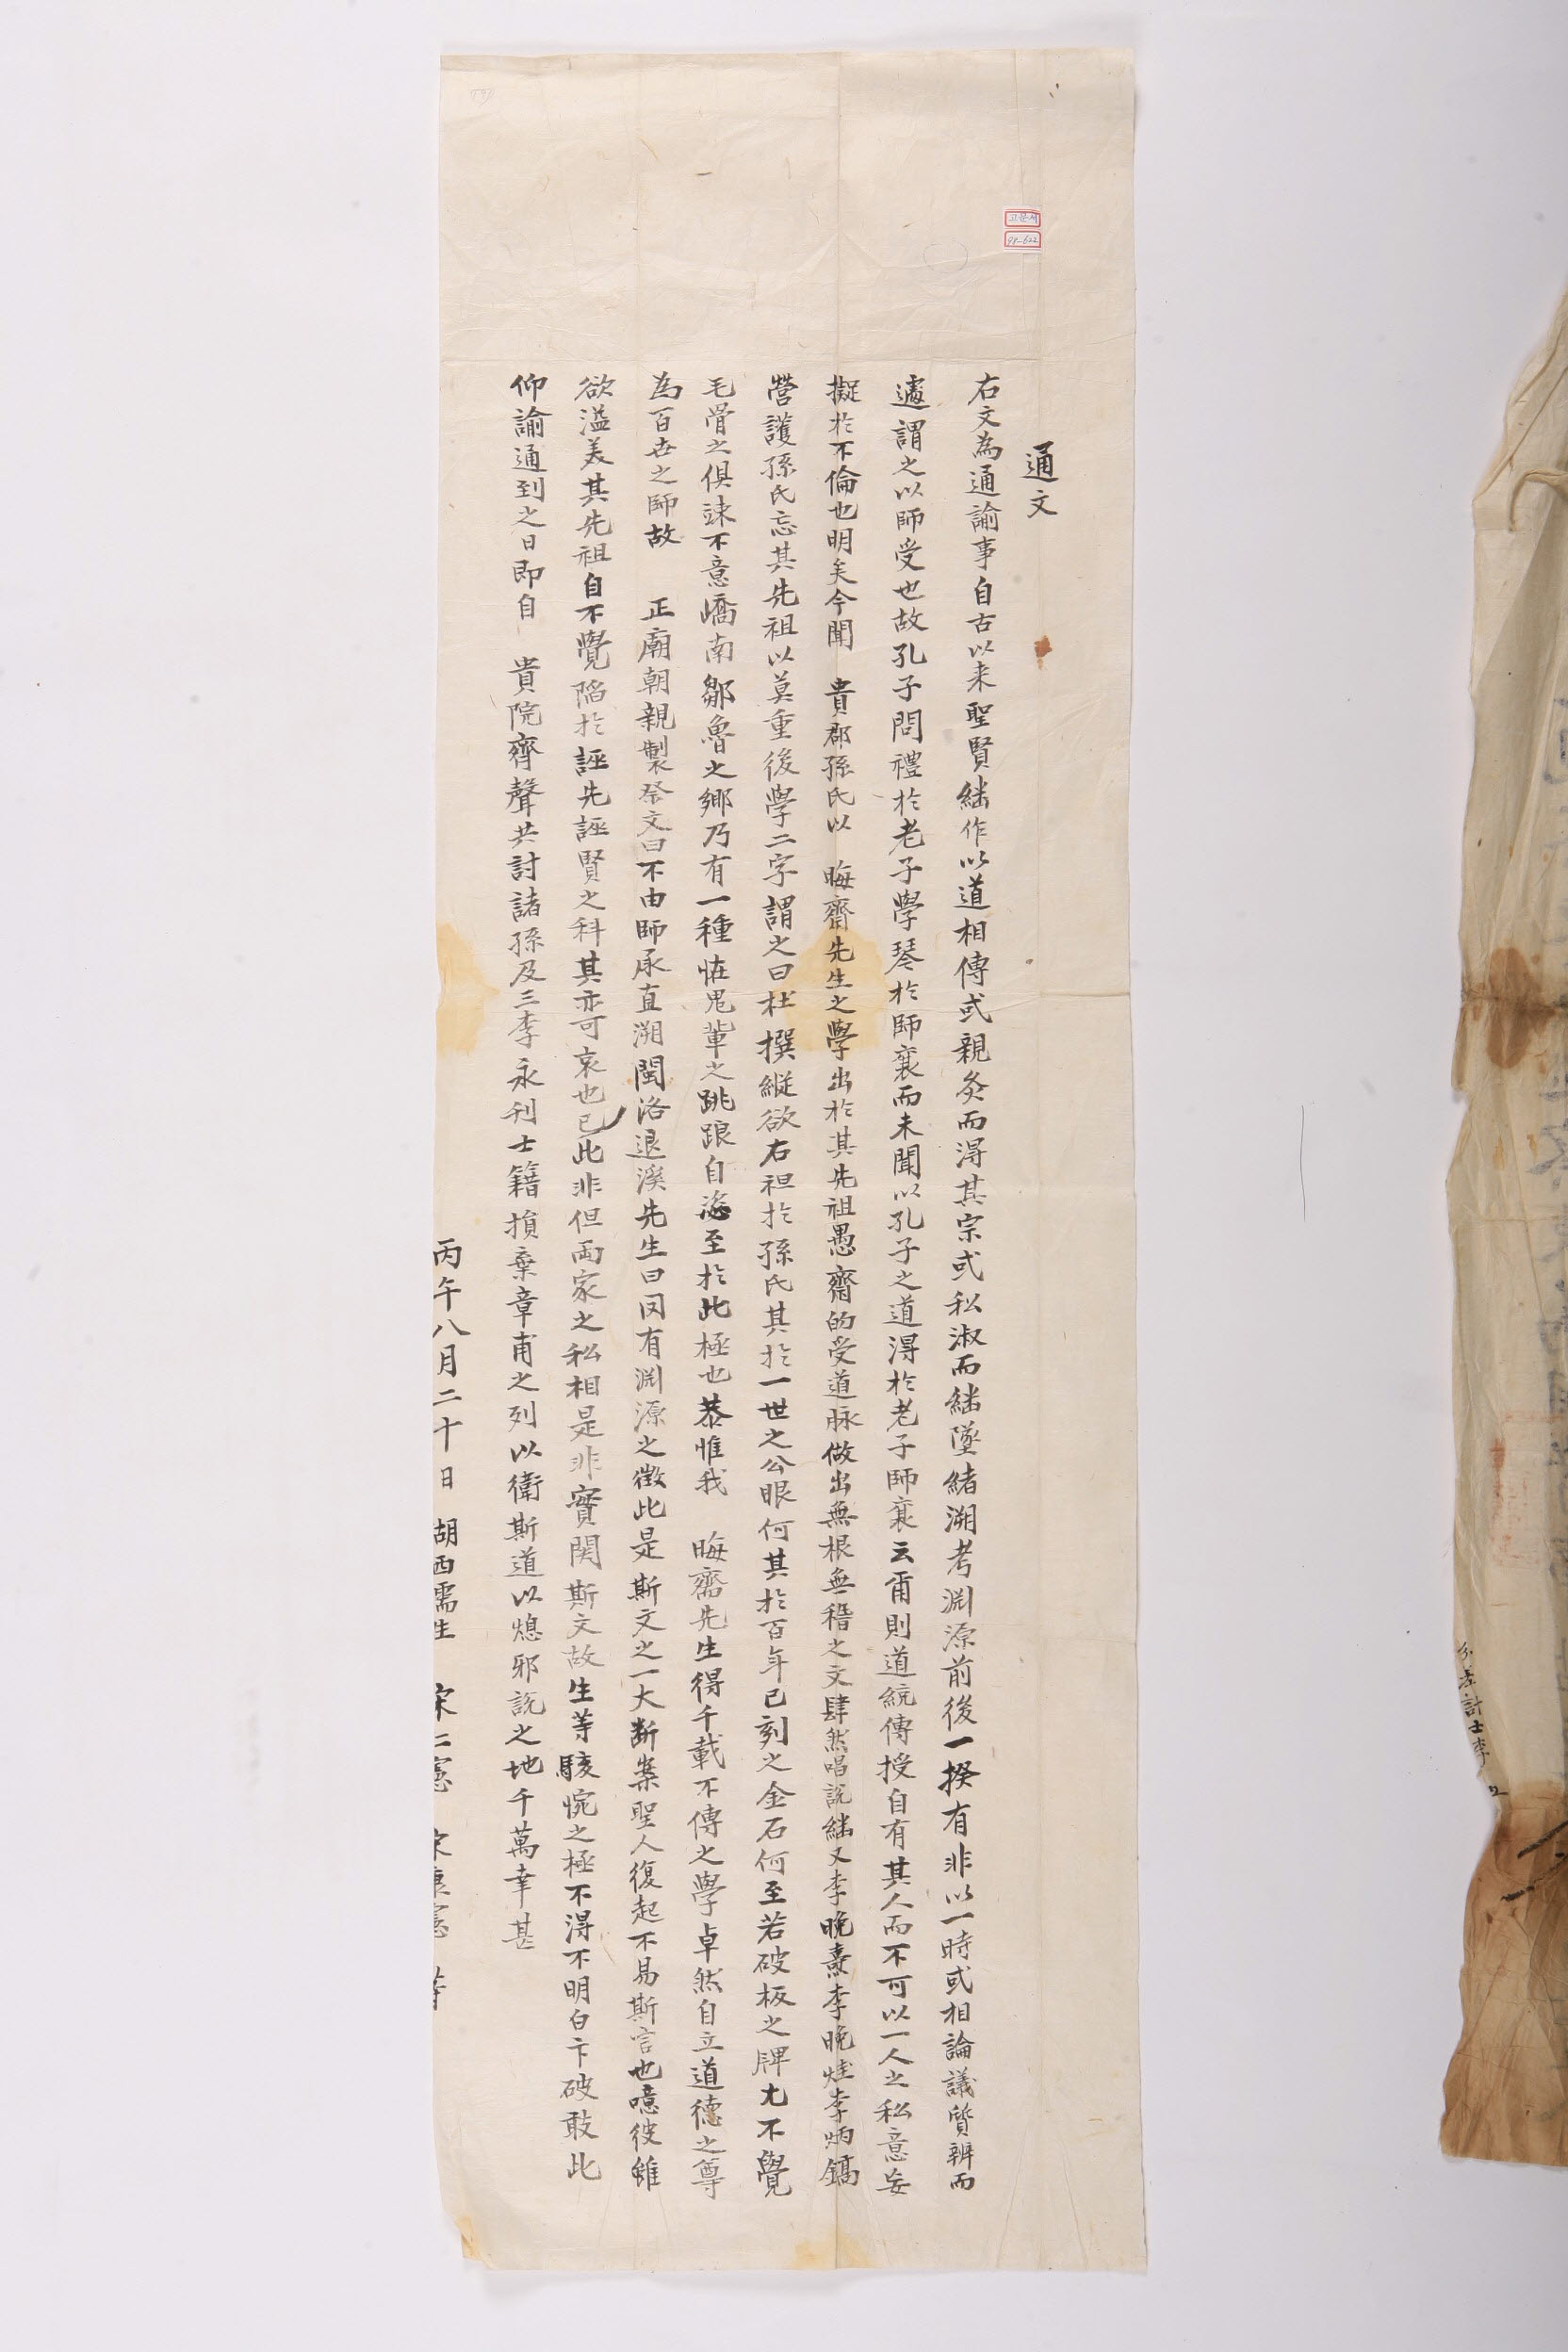 通文
右文為通諭事自古以来聖賢継作以道相傳或親炙而淂其宗或私淑而継墜緒溯考淵源前後一揆有非以一時或相論議質辨而
遽謂之以師受也故孔子問禮於老子學琴於師襄而未聞以孔子之道淂於老子師襄云甭則道統傳授自有其人而不可以一人之私意妄
擬於不倫也明矣今聞 貴郡孫氏以 晦齋先生之學出於其先祖愚齋的受道脉做出無根無稽之文肆然唱説継又李晚燾李晚煃李炳鎬
營護孫氏忘其先祖以莫重後學二字謂之曰杜撰縦欲右袒於孫氏其於一世之公眼何其於百年已刻之金石何至若破板之牌尤不覺
毛骨之俱竦不意嶠南鄒魯之鄉乃有一種恠鬼輩之跳踉自恣至於此極也恭惟我 晦齋先生得千載不傳之學卓然自立道德之尊
為百世之師故 正廟朝親製祭文曰不由師承直溯閩洛退溪先生曰罔有淵源之徵此是斯文之一大断案聖人復起不易斯言也噫彼雖
欲溢美其先祖自不覺陷於誣先誣賢之科其亦可哀也已此非但両家之私相是非實関斯文故生等駭惋之極不淂不明白卞破敢此
仰諭通到之日即自 貴院齊聲共討諸孫及三李永刊士籍損棄章甫之列以衛斯道以熄邪説之地千萬幸甚
丙午八月二十日 湖西儒生 宋仁憲 宋康憲 等
고문서
98-622